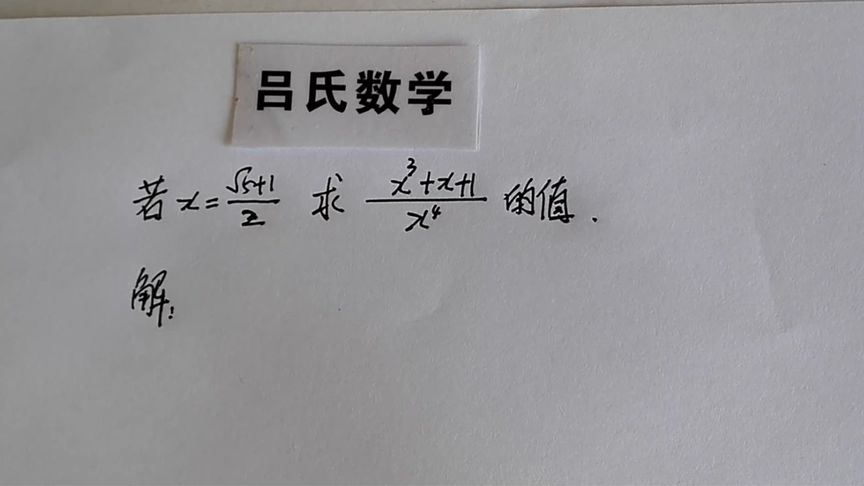 吕氏数学
若 x = (√5+1)/2 求 (x³+x+1)/x⁴ 的值.
解: